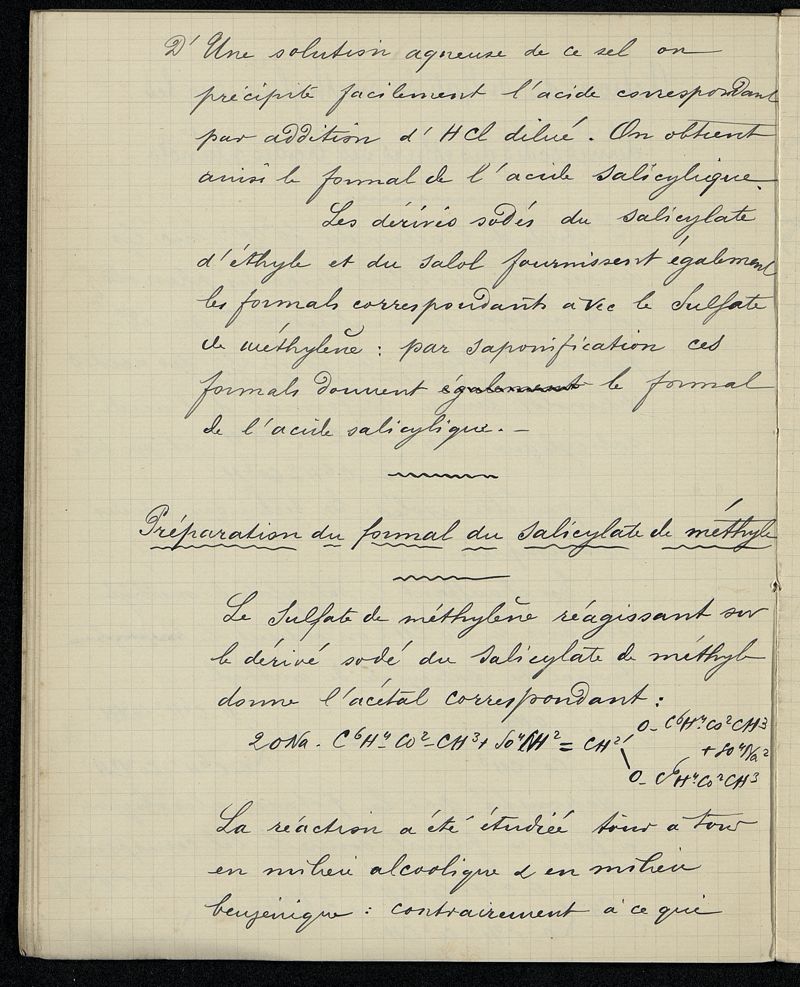 D'Une solution aqueuse de ce sel on
précipite facilement l'acide correspondant
par addition d'HCl dilué. On obtient
ainsi le formal de l'acide salicylique.
Les dérivés sodés du salicylate
d'éthyle et du salol fournissent également
les formals correspondants avec le sulfate
de méthylène : par saponification ces
formals donnent également le formal
de l'acide salicylique. —
Préparation du formal du salicylate de méthyle
Le sulfate de méthylène réagissant sur
le dérivé sodé du salicylate de méthyle
donne l'acétal correspondant :
O - C⁶H⁴·CO²CH³
2 ONa - C⁶H⁴ - CO² - CH³ + SO⁴CH² = CH² + SO⁴Na²
O - C⁶H⁴·CO²CH³
La réaction a été étudiée tour à tour
en milieu alcoolique & en milieu
benzénique : contrairement à ce qui